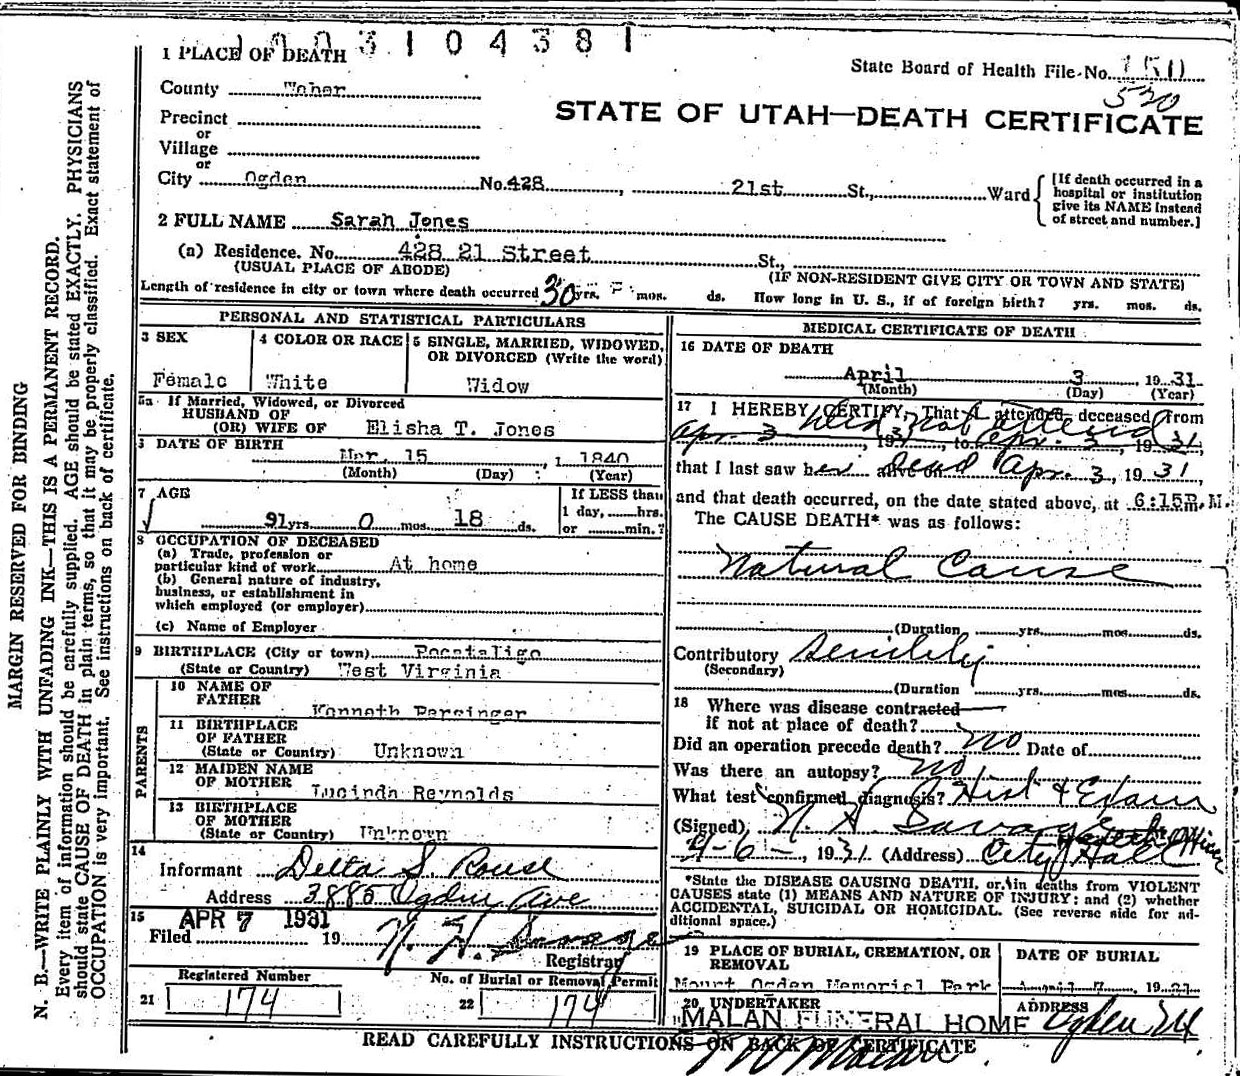 1003104381
1 PLACE OF DEATH
State Board of Health File No. 150
520
County Weber
STATE OF UTAH—DEATH CERTIFICATE
Precinct
or
Village
or
City Ogden No. 428, 21st St., Ward
[If death occurred in a hospital or institution give its NAME instead of street and number.]
2 FULL NAME Sarah Jones
(a) Residence. No. 428 21 Street St.,
(USUAL PLACE OF ABODE) (IF NON-RESIDENT GIVE CITY OR TOWN AND STATE)
Length of residence in city or town where death occurred 30 yrs. mos. ds. How long in U. S., if of foreign birth? yrs. mos. ds.
PERSONAL AND STATISTICAL PARTICULARS
3 SEX
Female
4 COLOR OR RACE
White
5 SINGLE, MARRIED, WIDOWED, OR DIVORCED (Write the word)
Widow
5a If Married, Widowed, or Divorced
HUSBAND OF
(OR) WIFE OF Elisha T. Jones
6 DATE OF BIRTH
Mar. 15, 1840
(Month) (Day) (Year)
7 AGE
91 yrs. 0 mos. 18 ds.
If LESS than
1 day, hrs.
or min.?
8 OCCUPATION OF DECEASED
(a) Trade, profession or
particular kind of work At home
(b) General nature of industry,
business, or establishment in
which employed (or employer)
(c) Name of Employer
9 BIRTHPLACE (City or town) Pocataligo
(State or Country) West Virginia
PARENTS
10 NAME OF
FATHER Kenneth Persinger
11 BIRTHPLACE
OF FATHER
(State or Country) Unknown
12 MAIDEN NAME
OF MOTHER Lucinda Reynolds
13 BIRTHPLACE
OF MOTHER
(State or Country) Unknown
14
Informant Delta S. Rouse
Address 3885 Ogden Ave
15 APR 7 1931
Filed 19 N. H. Savage
Registrar
Registered Number
21 174
No. of Burial or Removal Permit
22 174
MEDICAL CERTIFICATE OF DEATH
16 DATE OF DEATH
April 3, 1931
(Month) (Day) (Year)
17 I HEREBY CERTIFY, That I attended deceased from
Did not attend
Apr. 3, 1931, to Apr. 3, 1931,
that I last saw her alive on dead Apr. 3, 1931,
and that death occurred, on the date stated above, at 6:15 P.M.
The CAUSE DEATH* was as follows:
Natural Cause
(Duration yrs. mos. ds.
Contributory Senility
(Secondary)
(Duration yrs. mos. ds.
18 Where was disease contracted
if not at place of death?
Did an operation precede death? No Date of
Was there an autopsy? No
What test confirmed diagnosis? Hist & Exam
(Signed) N. H. Savage
Health Officer
4-6-, 1931 (Address) City Hall
*State the DISEASE CAUSING DEATH, or in deaths from VIOLENT
CAUSES state (1) MEANS AND NATURE OF INJURY; and (2) whether
ACCIDENTAL, SUICIDAL OR HOMICIDAL. (See reverse side for ad-
ditional space.)
19 PLACE OF BURIAL, CREMATION, OR
REMOVAL
Mount Ogden Memorial Park
DATE OF BURIAL
April 7, 1931
20 UNDERTAKER
MALAN FUNERAL HOME
ADDRESS
Ogden Ut
READ CAREFULLY INSTRUCTIONS ON BACK OF CERTIFICATE
MARGIN RESERVED FOR BINDING
N. B.—WRITE PLAINLY WITH UNFADING INK—THIS IS A PERMANENT RECORD.
Every item of information should be carefully supplied. AGE should be stated EXACTLY. PHYSICIANS
should state CAUSE OF DEATH in plain terms, so that it may be properly classified. Exact statement of
OCCUPATION is very important. See instructions on back of certificate.